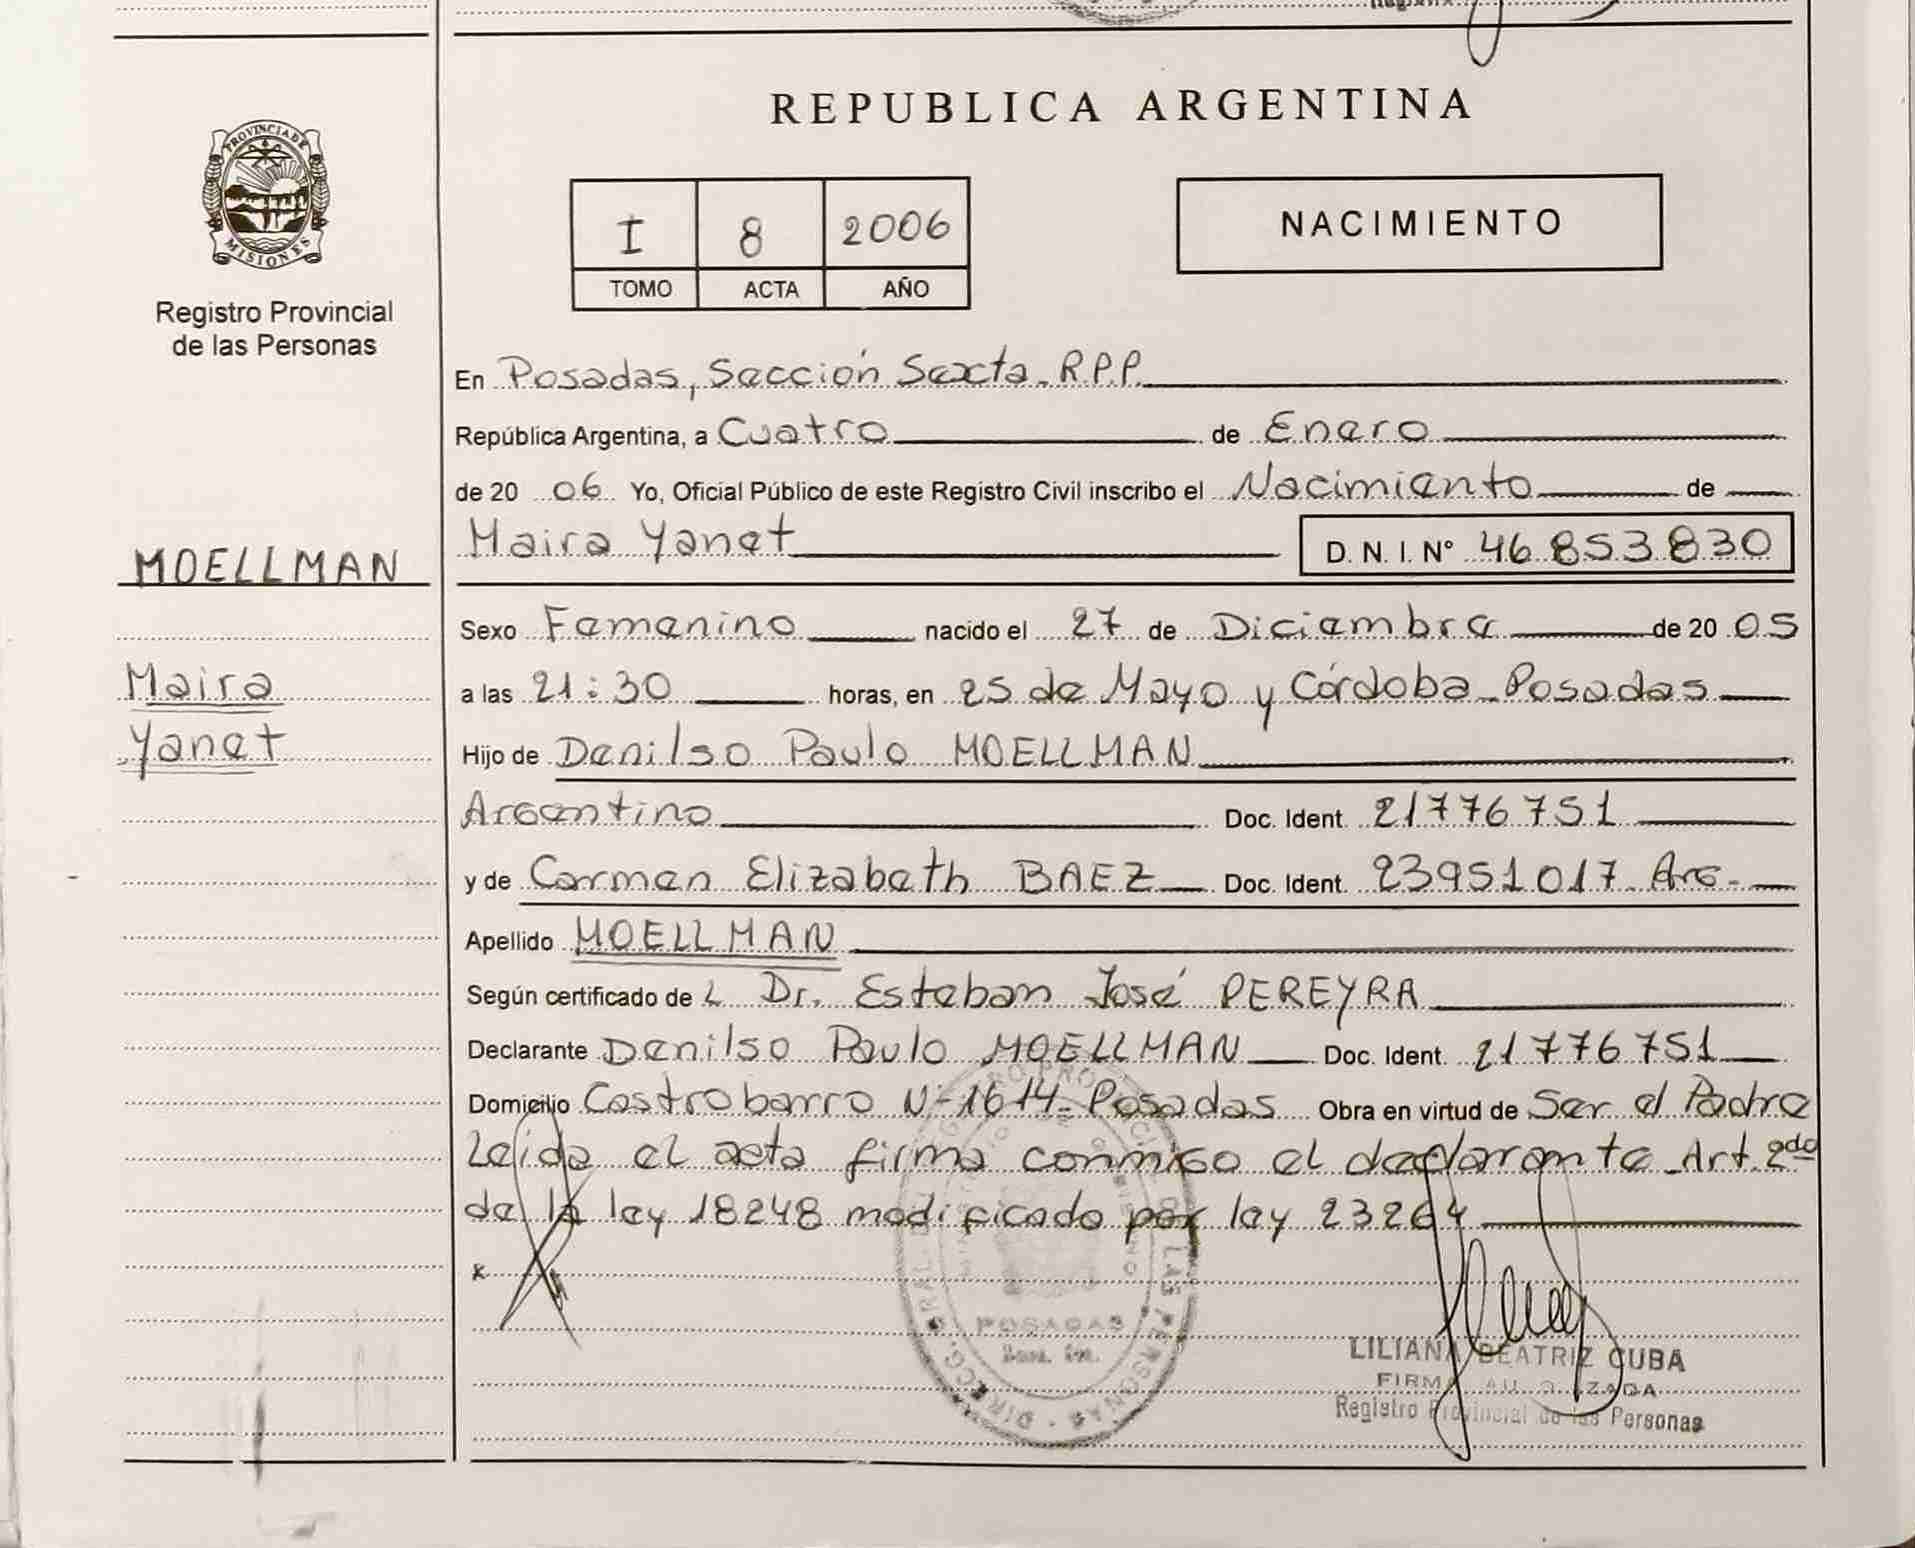 REPUBLICA ARGENTINA
PROVINCIA DE
MISIONES
Registro Provincial
de las Personas
I 8 2006
TOMO ACTA AÑO
NACIMIENTO
En Posadas, Sección Sexta R.P.P.
República Argentina, a Cuatro de Enero
de 20 06 Yo, Oficial Público de este Registro Civil inscribo el Nacimiento de
Maira Yanet D. N. I. Nº 46.853.830
MOELLMAN
Maira
Yanet
Sexo Femenino nacido el 27 de Diciembre de 20 05
a las 21:30 horas, en 25 de Mayo y Córdoba - Posadas
Hijo de Denilso Paulo MOELLMAN
Argentino Doc. Ident. 21776751
y de Carmen Elizabeth BAEZ Doc. Ident. 23951017 - Arg.-
Apellido MOELLMAN
Según certificado de L Dr. Esteban José PEREYRA
Declarante Denilso Paulo MOELLMAN Doc. Ident. 21776751
Domicilio Castrobarro Nº 1614 - Posadas Obra en virtud de Ser el Padre
Leída el acta firma conmigo el declarante - Art. 2do
de la ley 18248 modificado por ley 23264
x
POSADAS
LILIANA BEATRIZ CUBA
FIRMA AUTORIZADA
Registro Provincial de las Personas